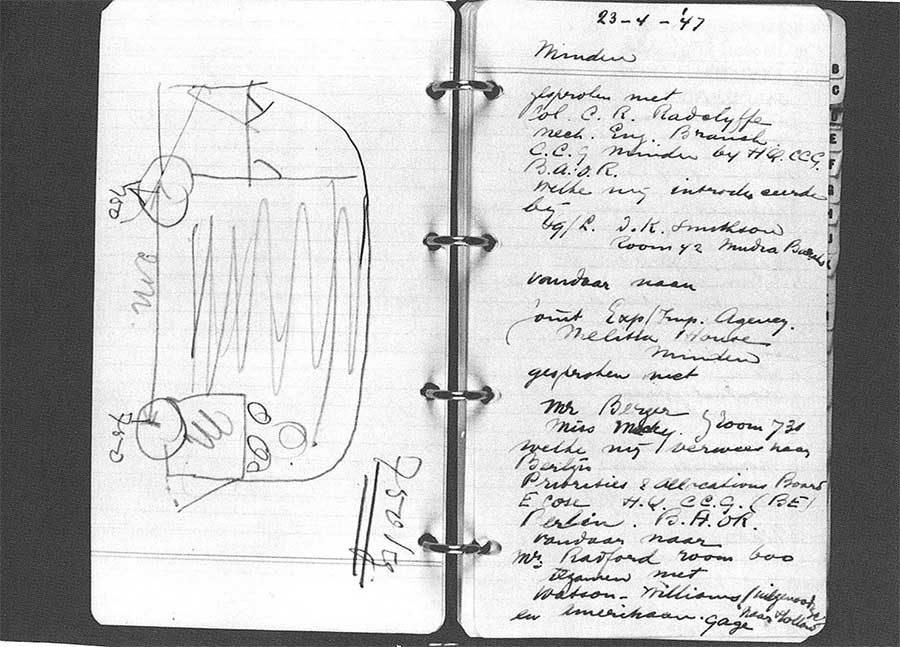 750
750
750 kg
23-4-'47
Minden
gesproken met
Col. C. R. Radclyffe
Mech. Eng. Branch
C.C.G Minden by H.Q. CCG.
B.A.O.R.
welke mij introduceerde
bij
J.K. Smithson
Room 42
vandaar naar
Joint Exp/Imp. Agency.
Melitta House
Minden
gesproken met
Mr Berger
Miss Room 731
welke mij verwees naar
Berlijn
Priorities & Allocations Board
H.Q. C.C.G. (BE)
Berlin. B.A.O.R.
vandaar naar
Mr Radford room 600
tezamen met
Watson-Williams
naar Holland
en Amerikaan. Gage
B
C
D
E
F
H
J